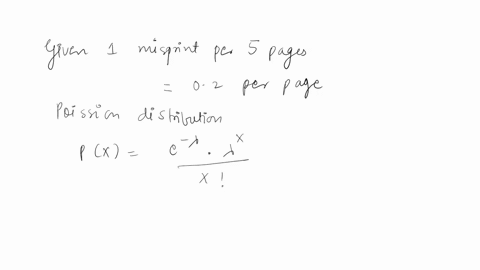 Given 1 misprint per 5 pages
= 0.2 per page
Poission distribution
P(X) = e^{-λ} . λ^x / x!